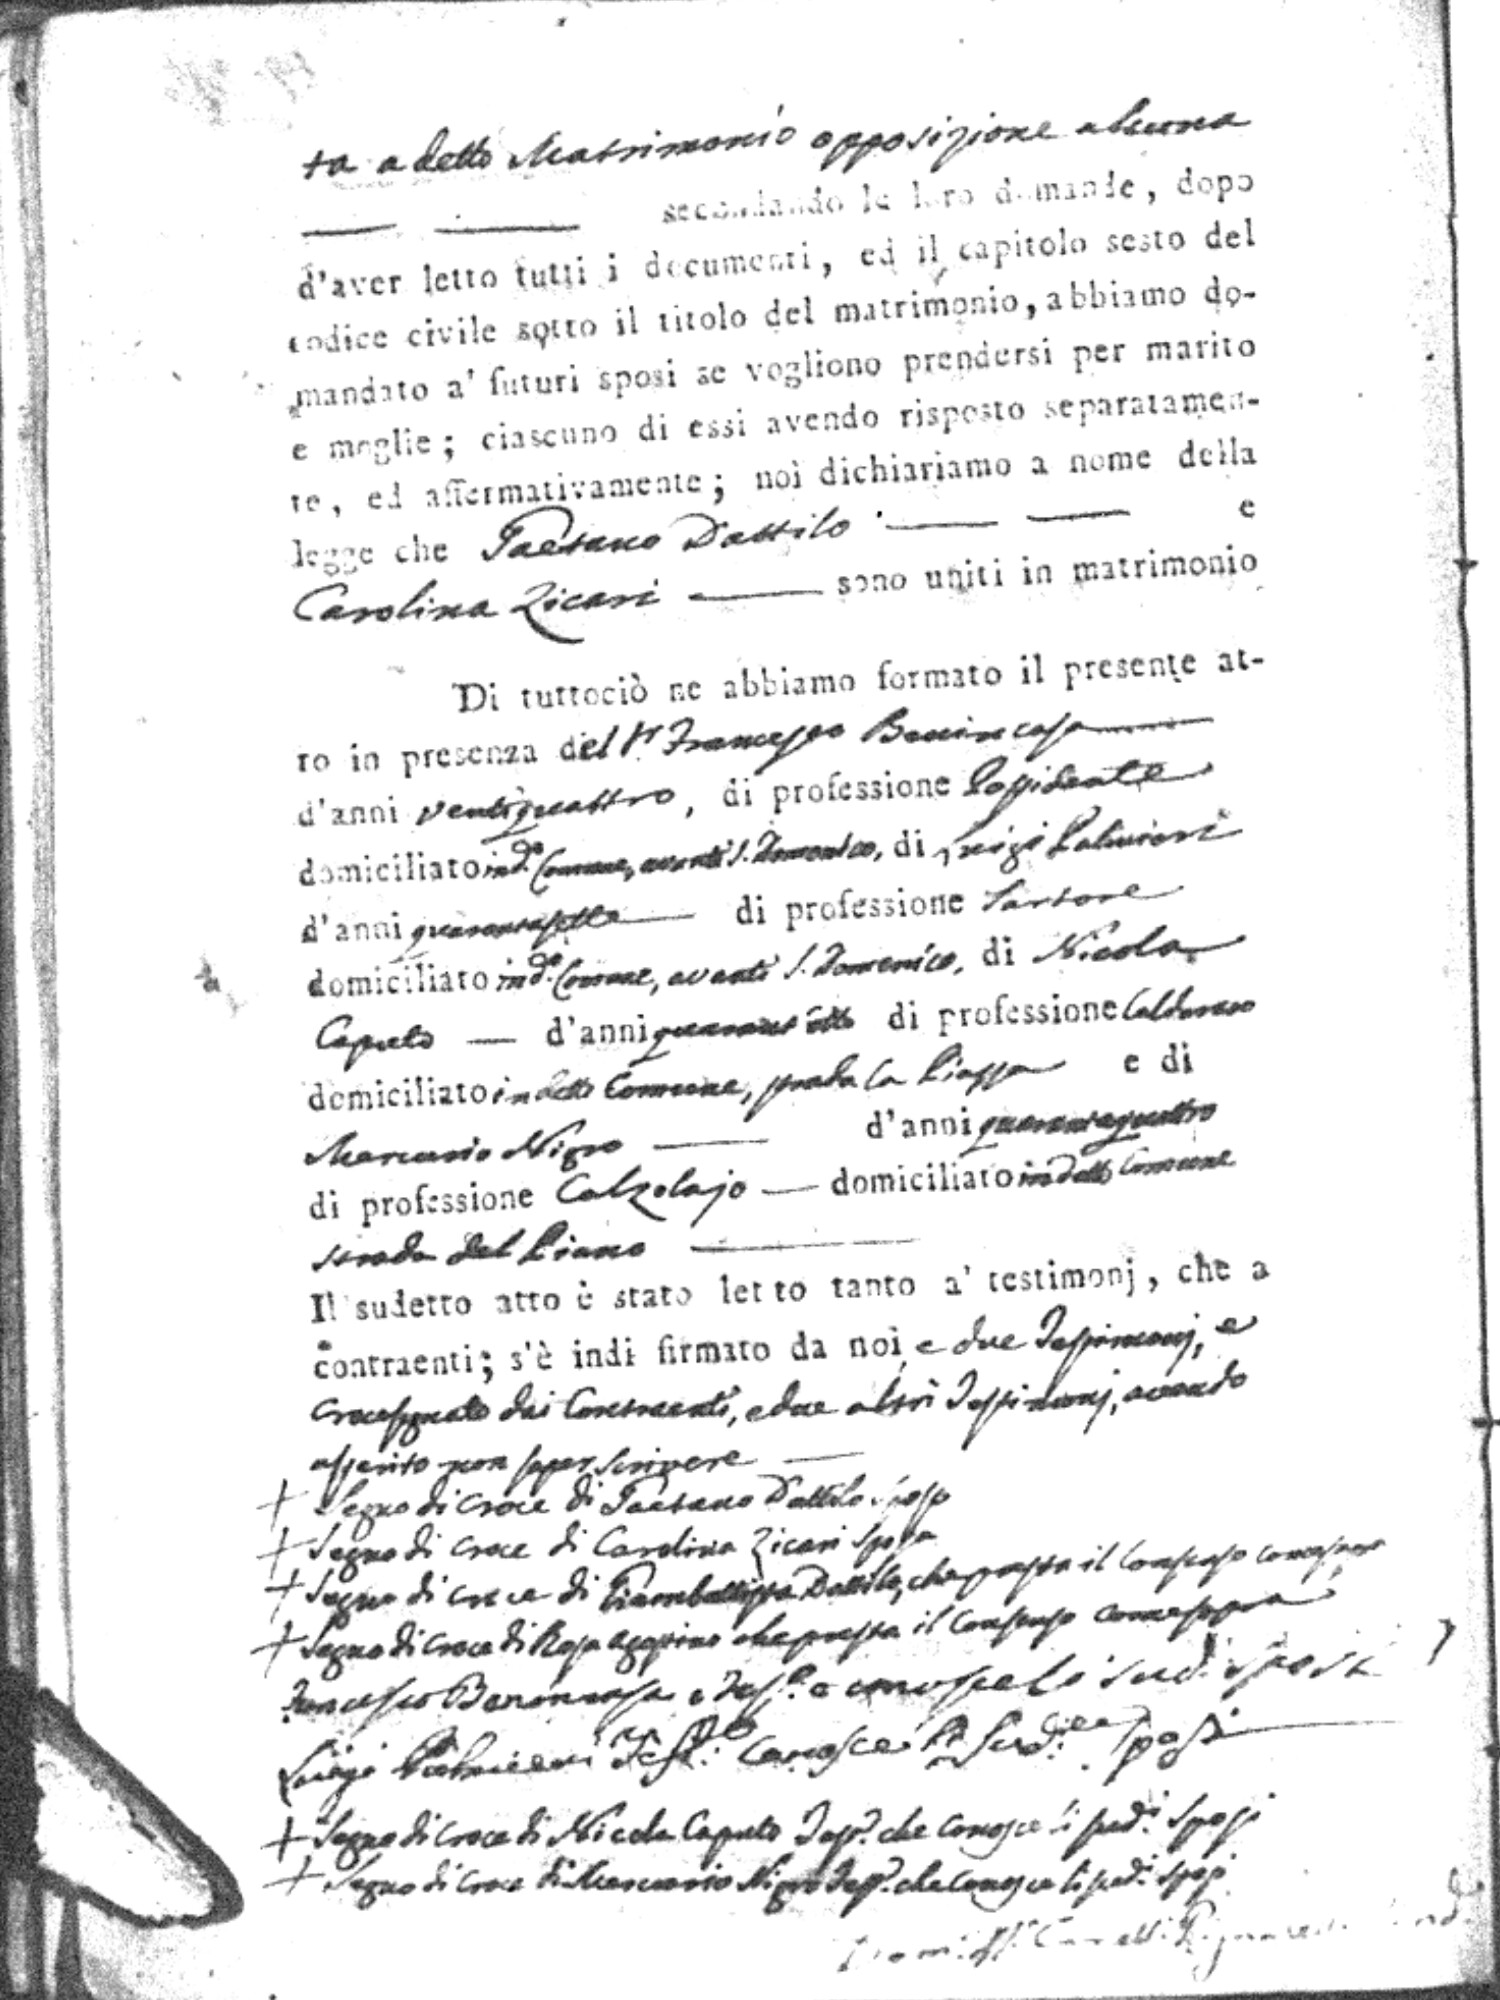 ta a detto Matrimonio opposizione alcuna
secondando le loro domande, dopo
d'aver letto tutti i documenti, ed il capitolo sesto del
codice civile sotto il titolo del matrimonio, abbiamo do-
mandato a' futuri sposi se vogliono prendersi per marito
e moglie; ciascuno di essi avendo risposto separatamen-
te, ed affermativamente; noi dichiariamo a nome della
legge che Gaetano Dattilo e
Carolina Zicari sono uniti in matrimonio
Di tuttociò ne abbiamo formato il presente at-
to in presenza del Sr. Francesco Benincasa
d'anni ventiquattro, di professione Possidente
domiciliato in do. Comune, avanti S. Domenico, di Luigi Palmieri
d'anni quarantasette di professione Sartore
domiciliato in do. Comune, avanti S. Domenico, di Nicola
Caputo d'anni quarant'otto di professione Caldararo
domiciliato in detto Comune, strada la Piazza e di
Mercurio Nigro d'anni quarantaquattro
di professione Calzolajo domiciliato in detto Comune
strada del Piano
Il sudetto atto è stato letto tanto a' testimonj, che a
contraenti; s'è indi firmato da noi e due Testimonj, e
crocesegnato dai Contraenti, e due altri Testimonj, avendo
asserito non saper scrivere
+ Segno di Croce di Gaetano Dattilo sposo
+ Segno di Croce di Carolina Zicari sposa
+ Segno di Croce di Giambattista Dattilo, che presta il Consenso come sopra
+ Segno di Croce di Rosa Agostino che presta il Consenso come sopra
Francesco Benincasa Tesmo. conosce li sudi. sposi
Luigi Palmieri Testmo. Conosce li Sudi. sposi
+ Segno di Croce di Nicola Caputo Testo. che conosce li sudi. Sposi
+ Segno di Croce di Mercurio Nigro Testo. che conosce li sudi. sposi